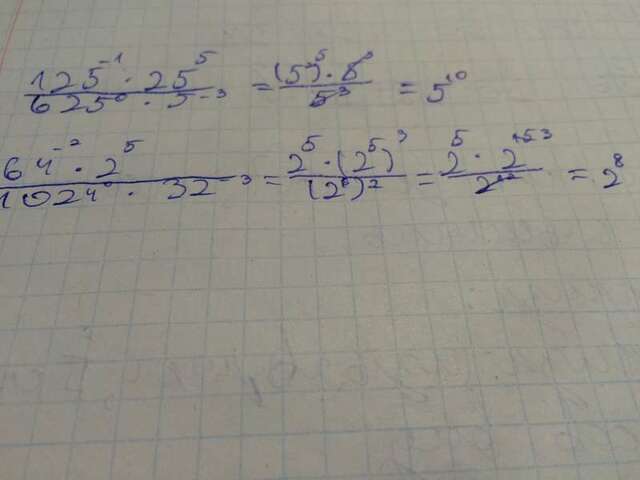 125⁻¹ · 25⁵ / 625⁰ · 5⁻³ = (5²)⁵ · 5³ / 5³ = 5¹⁰
64⁻² · 2⁵ / 1024⁰ · 32⁻³ = 2⁵ · (2⁵)³ / (2⁶)² = 2⁵ · 2¹⁵ / 2¹² = 2⁸